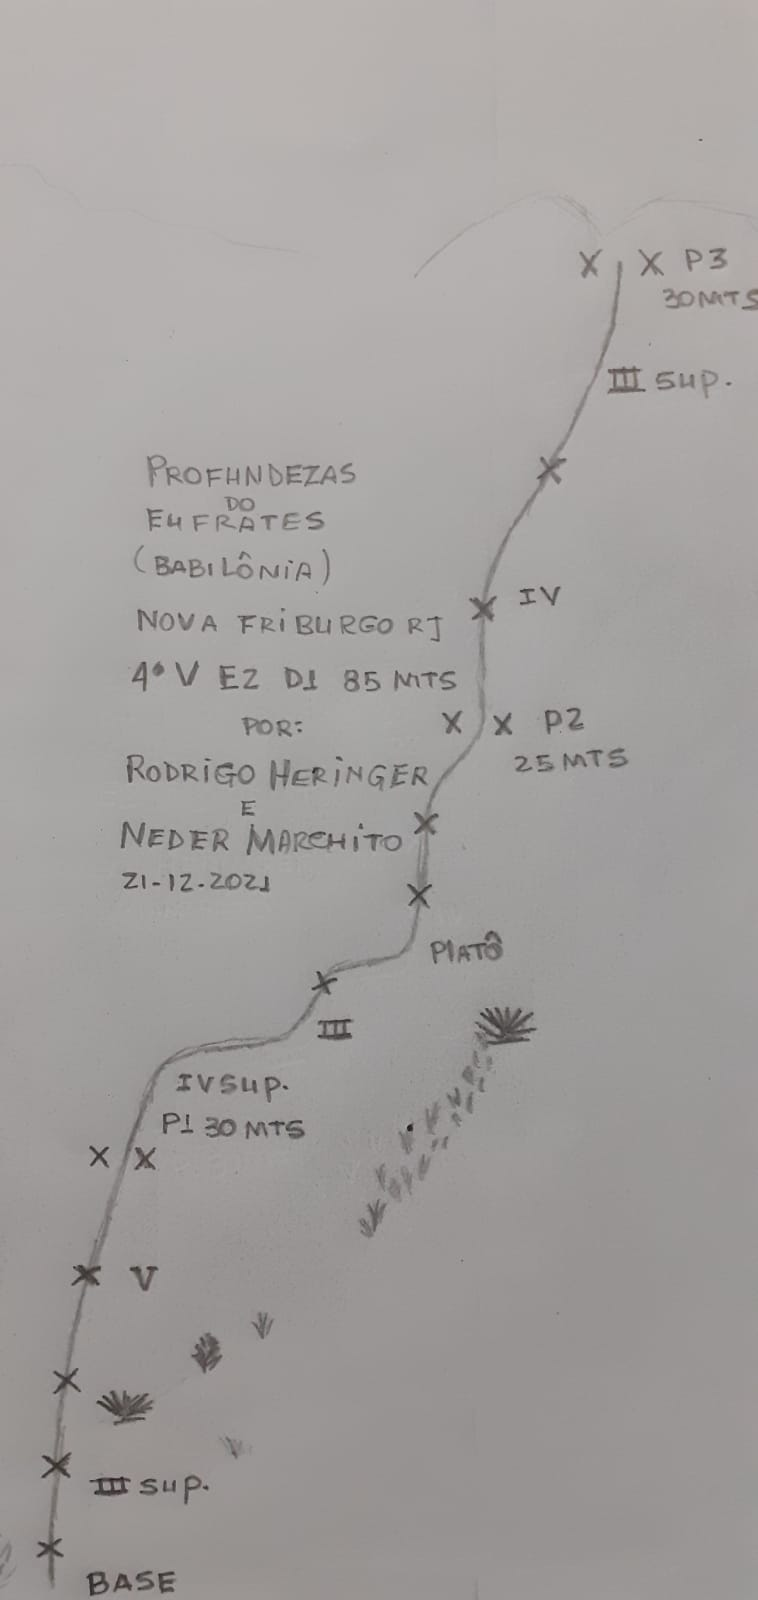 X X P3
30 MTS
III SUP.
X
PROFUNDEZAS
DO
EUFRATES
(BABILÔNIA)
X IV
NOVA FRIBURGO RJ
4º V E2 D1 85 MTS
X X P2
POR:
25 MTS
RODRIGO HERINGER
E
X
NEDER MARCHITO
21-12-2021
X
PLATÔ
X
III
IV SUP.
P1 30 MTS
X X
X V
X
X
III SUP.
X
BASE